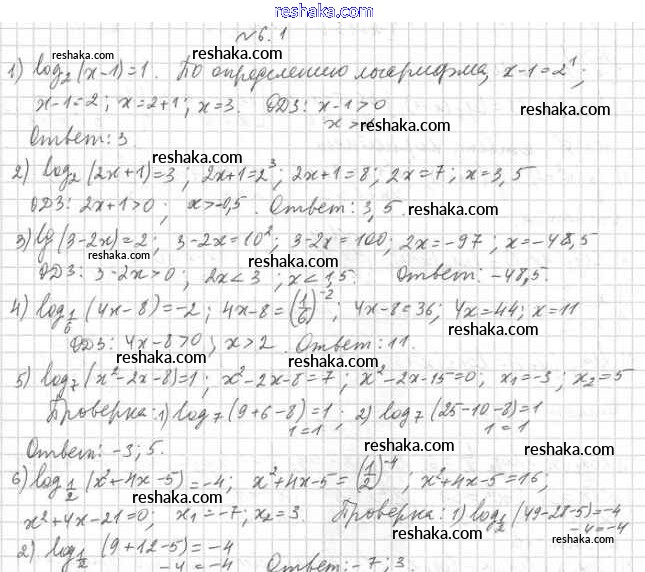 ©reshak.ru
№6.1
1) log₂(x-1)=1. По определению логарифма, x-1=2¹;
x-1=2; x=2+1; x=3. ОДЗ: x-1>0
x>1
Ответ: 3.
2) log₂(2x+1)=3; 2x+1=2³; 2x+1=8; 2x=7; x=3,5
ОДЗ: 2x+1>0; x>-0,5. Ответ: 3,5.
3) lg(3-2x)=2; 3-2x=10²; 3-2x=100; 2x=-97; x=-48,5
ОДЗ: 3-2x>0; 2x<3; x<1,5. Ответ: -48,5.
4) log_{1/6}(4x-8)=-2; 4x-8=(1/6)⁻²; 4x-8=36; 4x=44; x=11
ОДЗ: 4x-8>0; x>2. Ответ: 11.
5) log₇(x²-2x-8)=1; x²-2x-8=7; x²-2x-15=0; x₁=-3; x₂=5
Проверка: 1) log₇(9+6-8)=1; 2) log₇(25-10-8)=1
1=1 1=1
Ответ: -3; 5.
6) log_{1/2}(x²+4x-5)=-4; x²+4x-5=(1/2)⁻⁴; x²+4x-5=16;
x²+4x-21=0; x₁=-7; x₂=3. Проверка: 1) log_{1/2}(49-28-5)=-4
-4=-4
2) log_{1/2}(9+12-5)=-4
-4=-4 Ответ: -7; 3.
reshaka.com
reshaka.com
reshaka.com
reshaka.com
reshaka.com
reshaka.com
reshaka.com
reshaka.com
reshaka.com
reshaka.com
reshaka.com
reshaka.com
reshaka.com
reshaka.com